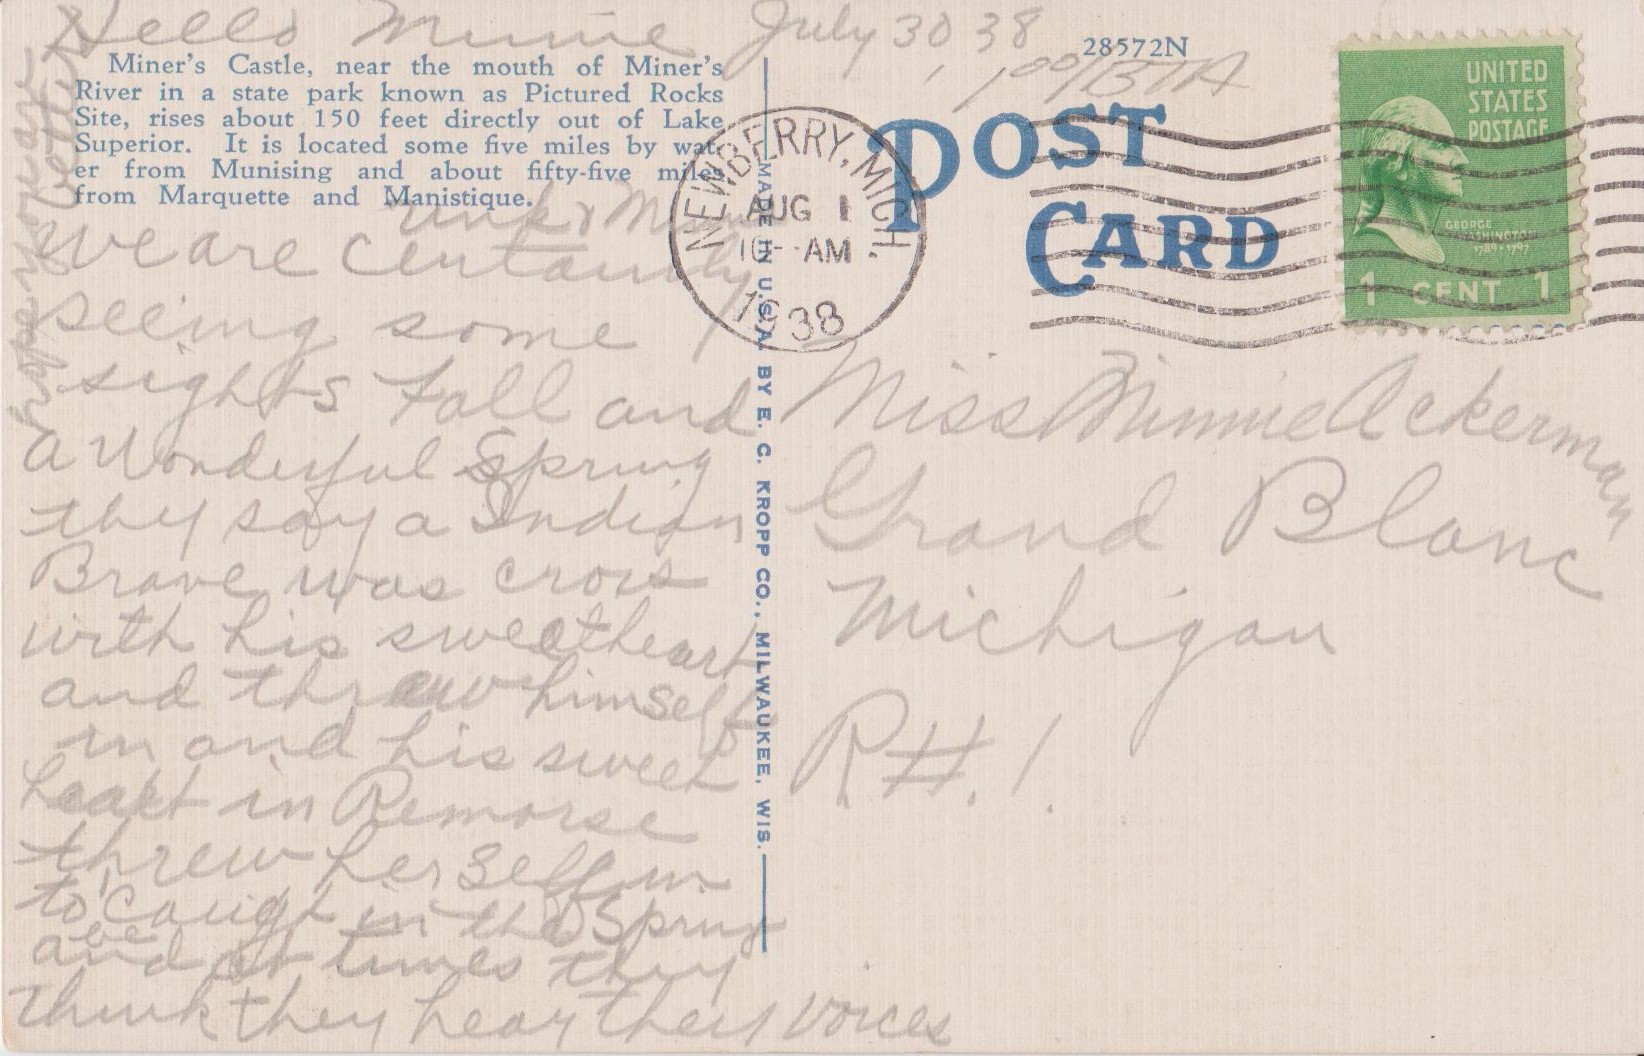 Hello Minnie July 30, 38
28572N
Miner's Castle, near the mouth of Miner's
River in a state park known as Pictured Rocks
Site, rises about 150 feet directly out of Lake
Superior. It is located some five miles by wat-
er from Munising and about fifty-five miles
from Marquette and Manistique.
hope your are
better
we are centainly
seeing some
sights Fall and
a Wonderful Spring
they say a Indian
Brave was cross
with his sweetheart
and threw himself
in and his sweet
heart in Remorse
threw her self in
to be caught in the Spring
and at times they
think they hear they voices
MADE IN U.S.A. BY E. C. KROPP CO., MILWAUKEE, WIS.
POST
CARD
NEWBERRY, MICH.
AUG 1
10 - AM
1938
UNITED
STATES
POSTAGE
GEORGE
WASHINGTON
1789-1797
1 CENT 1
Miss Minnie Ackerman
Grand Blanc
Michigan
R#. 1.